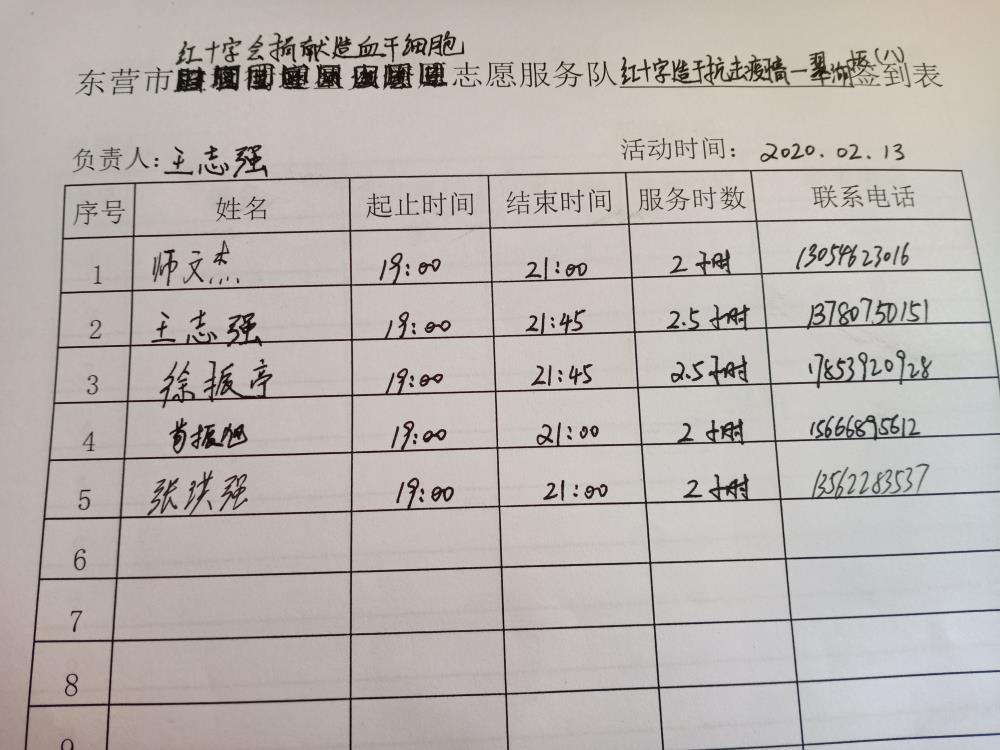 红十字会捐献造血干细胞
东营市志愿服务队红十字造干抗击疫情一翠湖 (八)签到表
负责人:王志强 活动时间: 2020.02.13
序号 姓名 起止时间 结束时间 服务时数 联系电话
1 师文杰 19:00 21:00 2小时 13054623016
2 王志强 19:00 21:45 2.5小时 13780750151
3 徐振亭 19:00 21:45 2.5小时 17853920928
4 苟振旭 19:00 21:00 2小时 15666895612
5 张琪强 19:00 21:00 2小时 13562283537
6
7
8
9